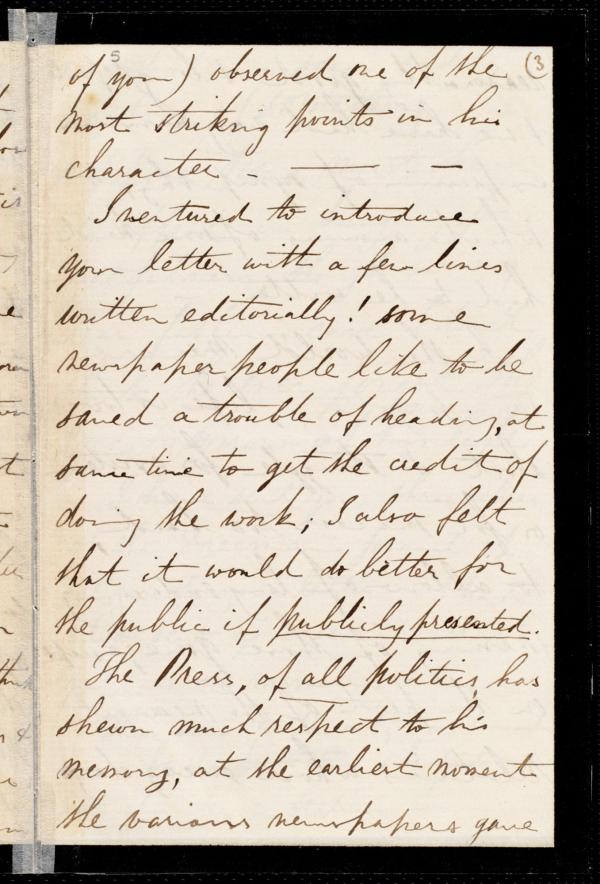 5
(3
of you) observed one of the
most striking points in his
character - — —
I ventured to introduce
your letter with a few lines
written editorially! some
newspaper people like to be
saved a trouble of heading, at
same time to get the credit of
doing the work; I also felt
that it would do better for
the public if publicly presented.
The Press, of all politics, has
shewn much respect to his
memory, at the earliest moment
the various newspapers gave